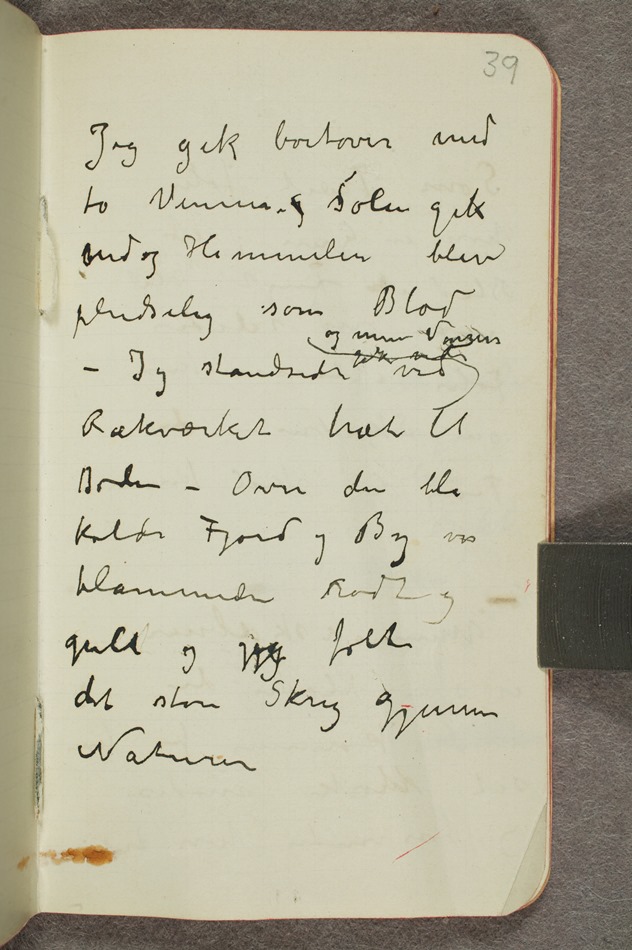 39
Jeg gik bortover med
to Venner og Solen gik
ned og Himmelen blev
pludselig som Blod
og mine Venner
gik videre
– Jeg standsede ved
Rækværket træt til
Døden – Over den blå
kolde Fjord og By var
flammende Rødt og
gult og jeg følte
det store Skrig gjennem
Naturen